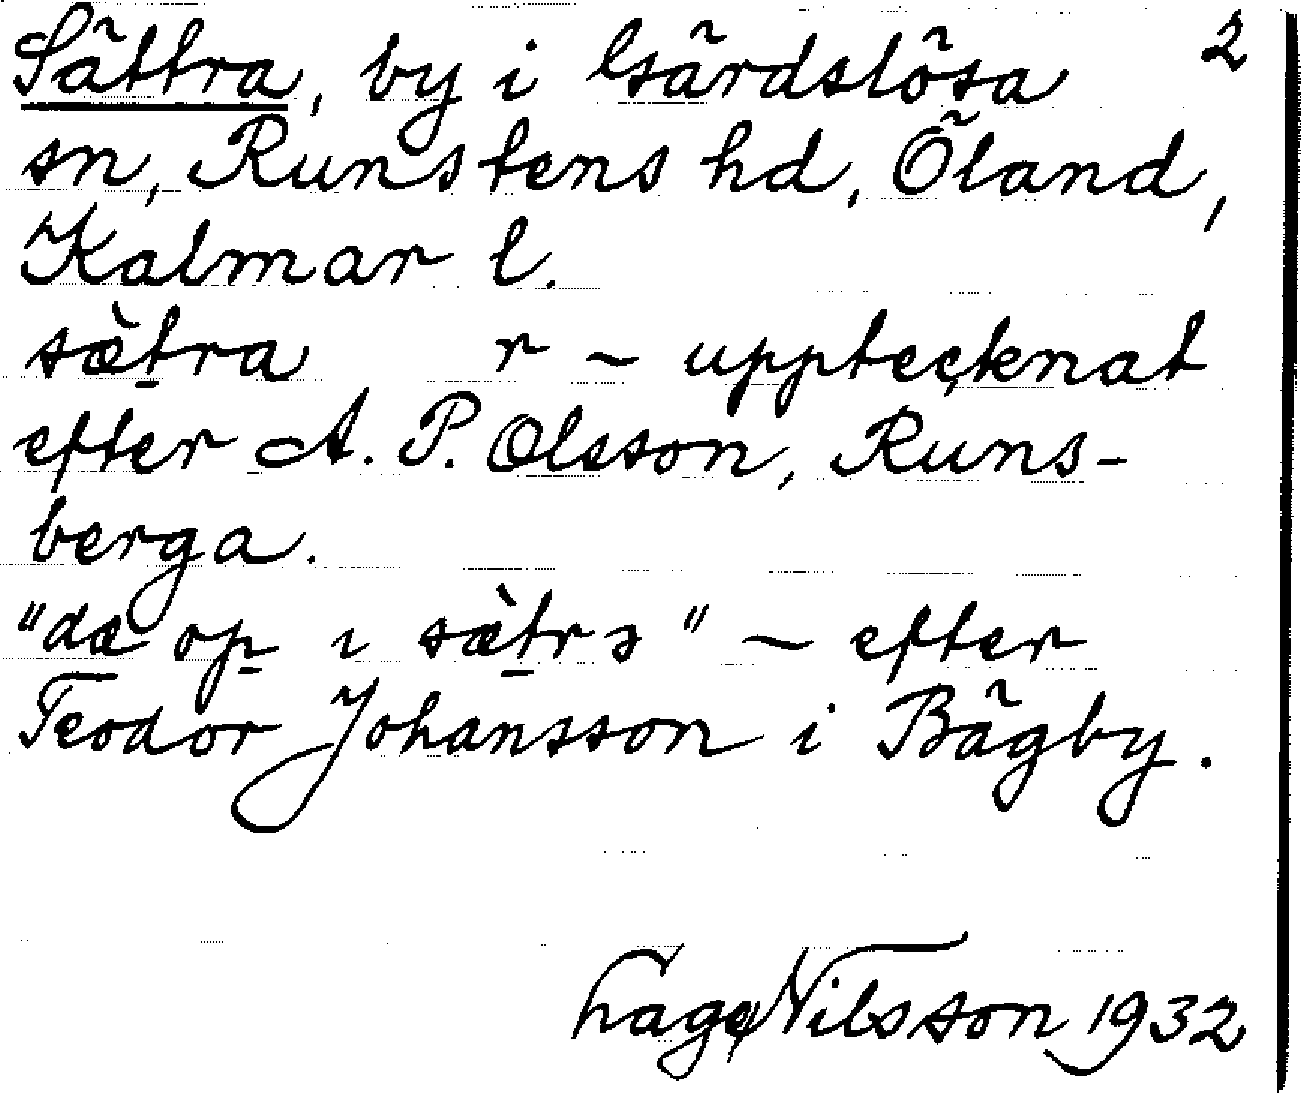 Sättra, by i Gärdslösa 2
sn, Runstens hd, Öland,
Kalmar l.
sæ̀t̠ra r ~ upptecknat
efter A. P. Olsson, Runs-
berga.
"dæ op̠ ı sæ̀t̠rɘ" ~ efter
Teodor Johansson i Bägby.
Hage Nilsson 1932